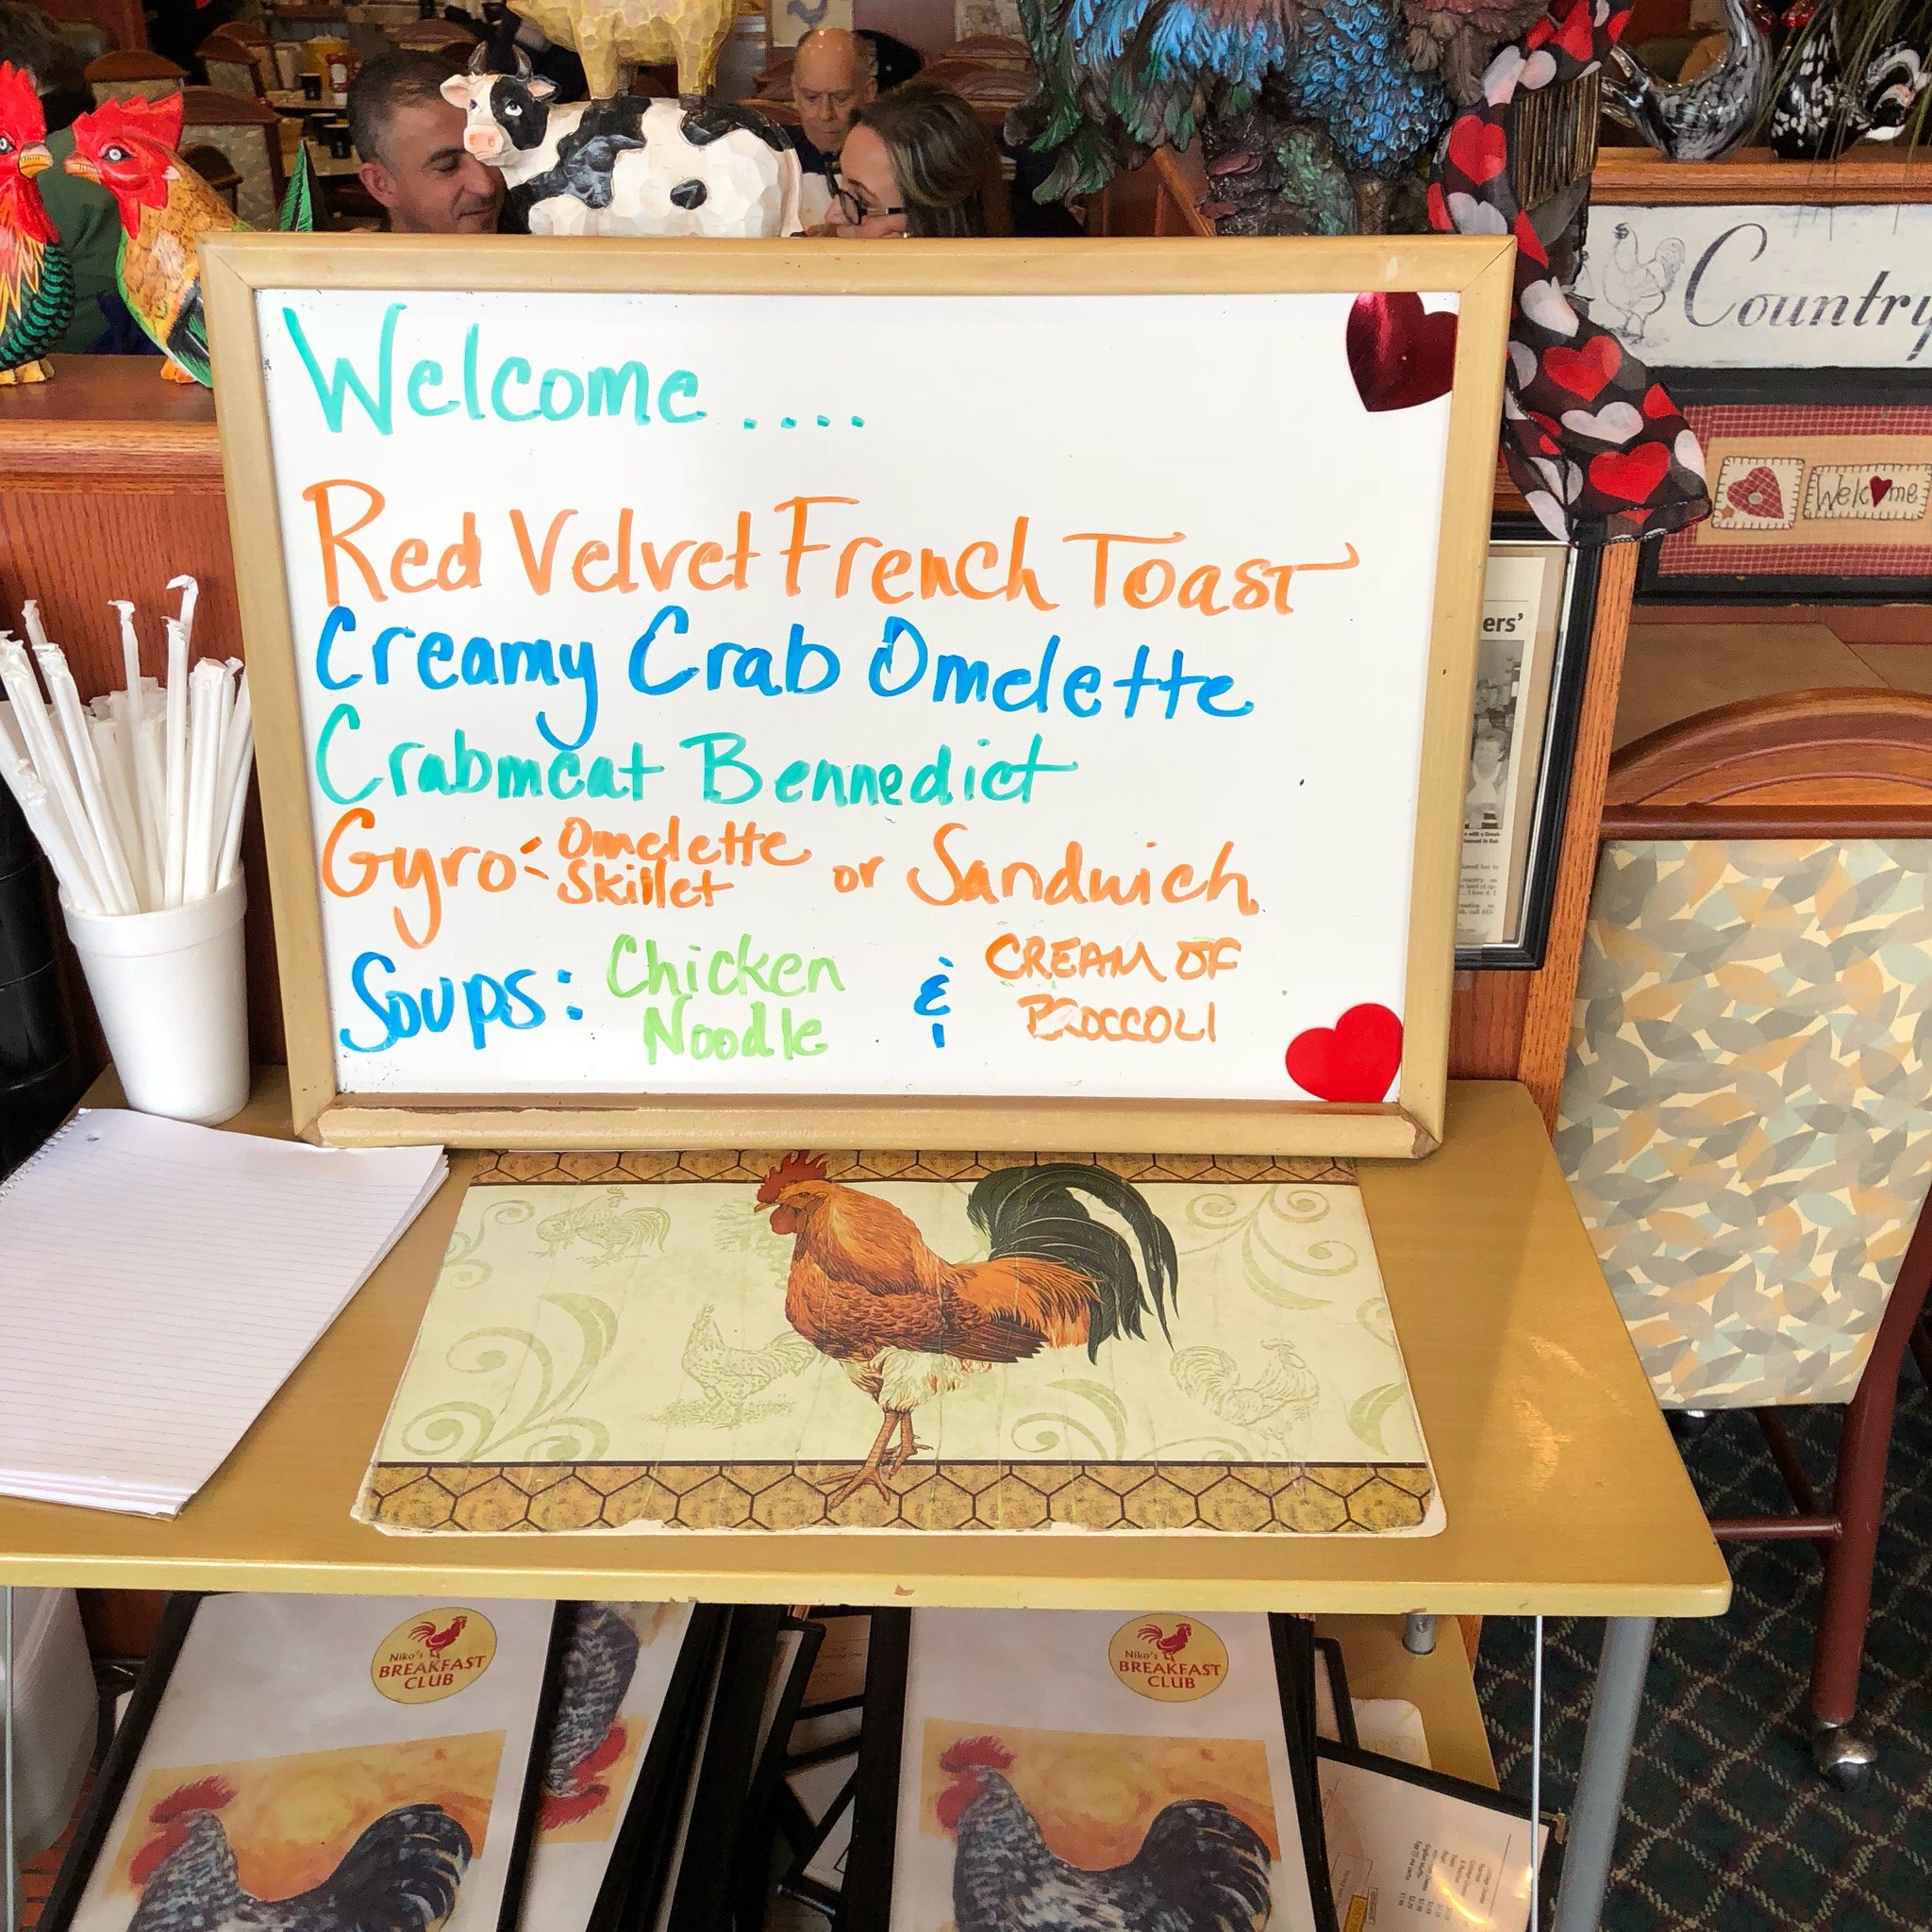 Welcome ....
Red Velvet French Toast
Creamy Crab Omelette
Crabmeat Bennedict
Gyro: Omelette Skillet or Sandwich
Soups: Chicken Noodle & CREAM OF BROCCOLI
Country
Welcome
ers'
Niko's
BREAKFAST
CLUB
Niko's
BREAKFAST
CLUB